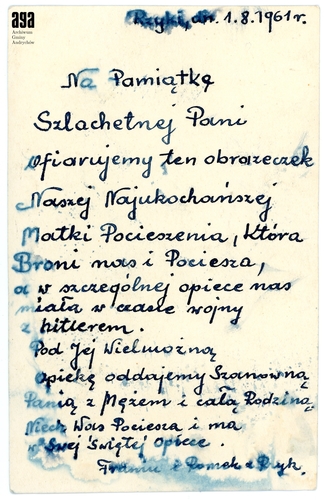 aga
Archiwum
Gminy
Andrychów
Ryki, dn. 1.8.1961r.
Na Pamiątkę
Szlachetnej Pani
ofiarujemy ten obrazeczek
Naszej Najukochańszej
Matki Pocieszenia, która
Broni nas i Pociesza,
a w szczególnej opiece nas
miała w czasie wojny
z hitlerem.
Pod Jej Wielmożną
opiekę oddajemy Szanowną
Panią z Mężem i całą Rodziną
Niech Was Pociesza i ma
w Swej Świętej opiece.
Frania i Romek z Ryk.